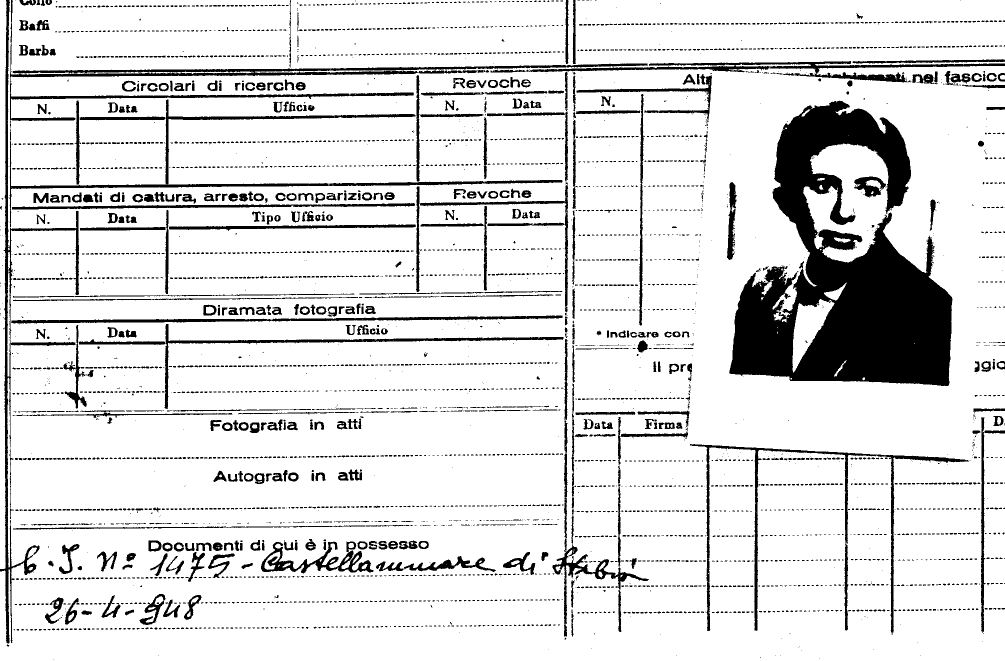 Collo
Baffi
Barba
Circolari di ricerche
Revoche
N. Data Ufficio
N. Data
Mandati di cattura, arresto, comparizione
Revoche
N. Data Tipo Ufficio
N. Data
Diramata fotografia
N. Data Ufficio
Fotografia in atti
Autografo in atti
Documenti di cui è in possesso
C. I. Nº 1475 - Castellammare di Stabia
26-4-948
Altr nel fascico
N.
* Indicare con
Il pre ggio
Data Firma D